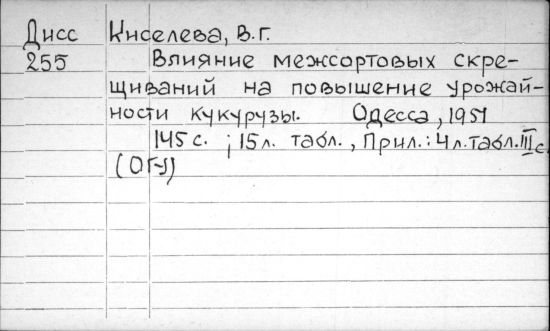 Дисс Киселева, В.Г.
255 Влияние межсортовых скре-
щиваний на повышение урожай-
ности кукурузы. Одесса, 1951
145 с. ; 15 л. табл., Прил.: 4 л. табл. III с.
(ОГУ)